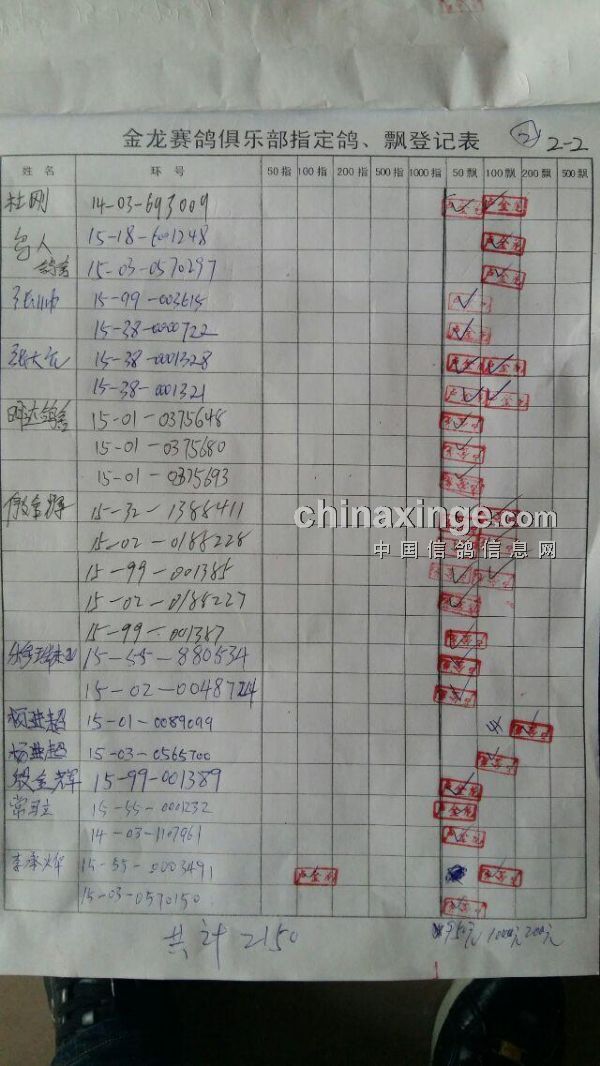 金龙赛鸽俱乐部指定鸽、飘登记表 2 2-2
姓名 环号 50指 100指 200指 500指 1000指 50飘 100飘 200飘 500飘
杜刚 14-03-693009
鸟人鸽舍 15-18-601248
15-03-0570297
15-99-003615
15-38-0000722
15-38-0001328
15-38-0001321
15-01-0375648
15-01-0375680
15-01-0375693
15-32-1388411
15-02-0188228
15-99-001385
15-02-0188227
15-99-001387
15-55-880534
15-02-0048724
杨进超 15-01-0089099
杨进超 15-03-0565700
段金辉 15-99-001389
15-55-0001232
14-03-1107961
李泽烨 15-55-0003491
15-03-0570150
共计2150
950元 1000元 200元
chinaxinge.com
中国信鸽信息网